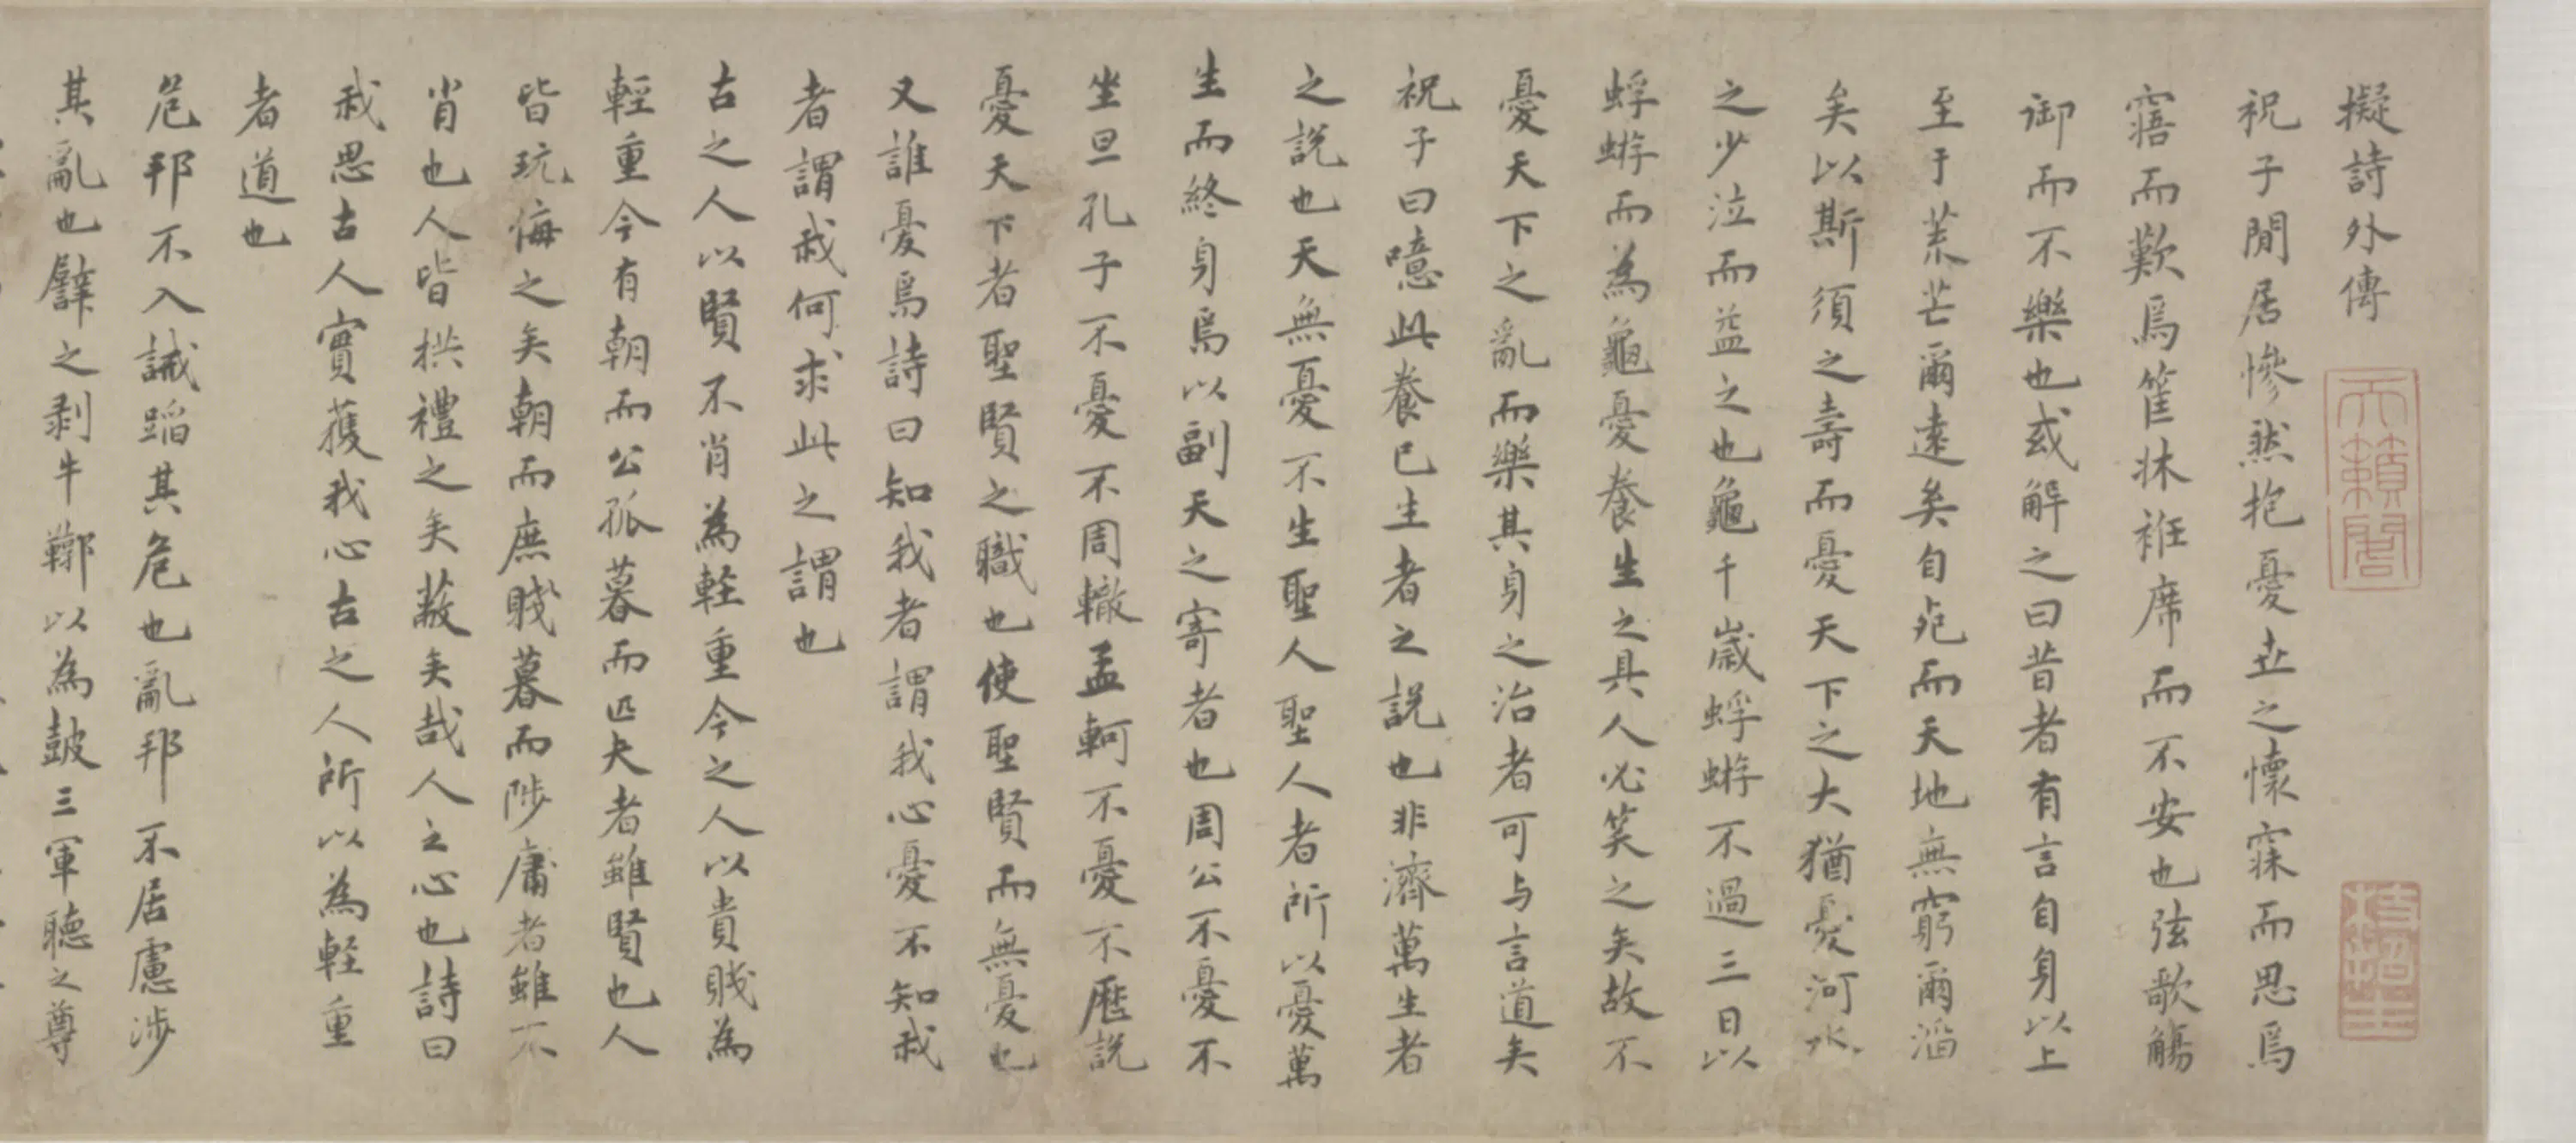 擬詩外傳
祝子閒居慘然抱憂世之懷寐而思焉
寤而歎焉筐牀袵席而不安也弦歌觴
御而不樂也或解之曰昔者有言自身以上
至于荒芒爾遠矣自死而天地無窮爾滔
矣以斯須之壽而憂天下之大猶憂河水
之少泣而益之也龜千歲蜉蝣不過三日以
蜉蝣而為龜憂養生之具人必笑之矣故不
憂天下之亂而樂其身之治者可与言道矣
祝子曰噫此養已生者之説也非濟萬生者
之説也天無憂不生聖人聖人者所以憂萬
生而終身焉以副天之寄者也周公不憂不
坐旦孔子不憂不周轍孟軻不憂不歷説
憂天下者聖賢之職也使聖賢而無憂也
又誰憂焉詩曰知我者謂我心憂不知我
者謂我何求此之謂也
古之人以賢不肖為軽重今之人以貴賤為
輕重今有朝而公孤暮而匹夫者雖賢也人
皆玩侮之矣朝而庶賤暮而陟庸者雖不
肖也人皆拱禮之矣蔽矣哉人之心也詩曰
我思古人實獲我心古之人所以為軽重
者道也
危邦不入誡蹈其危也亂邦不居慮涉
其亂也譬之剥牛鞹以為鼓三軍聴之尊